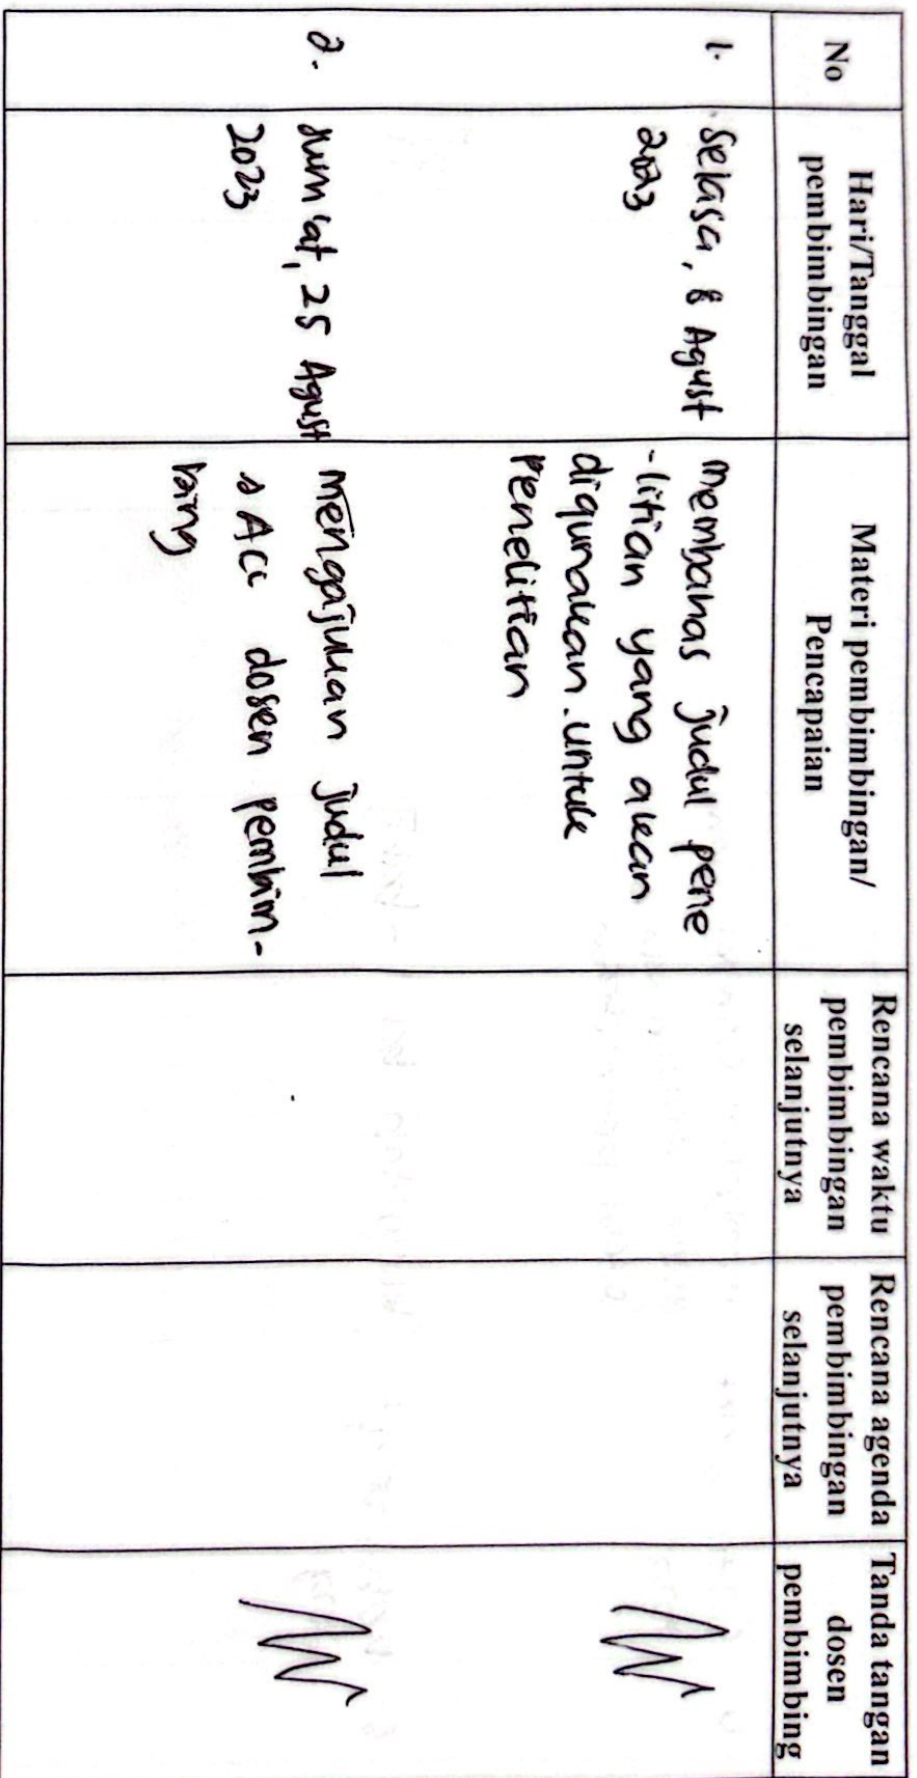 No
Hari/Tanggal
pembimbingan
Materi pembimbingan/
Pencapaian
Rencana waktu
pembimbingan
selanjutnya
Rencana agenda
pembimbingan
selanjutnya
Tanda tangan
dosen
pembimbing
1.
Selasa, 8 Agust
2023
Membahas judul pene
-litian yang akan
digunakan untuk
Penelitian
2.
Jum'at, 25 Agust
2023
Mengajukan judul
& Acc dosen pembim-
bing